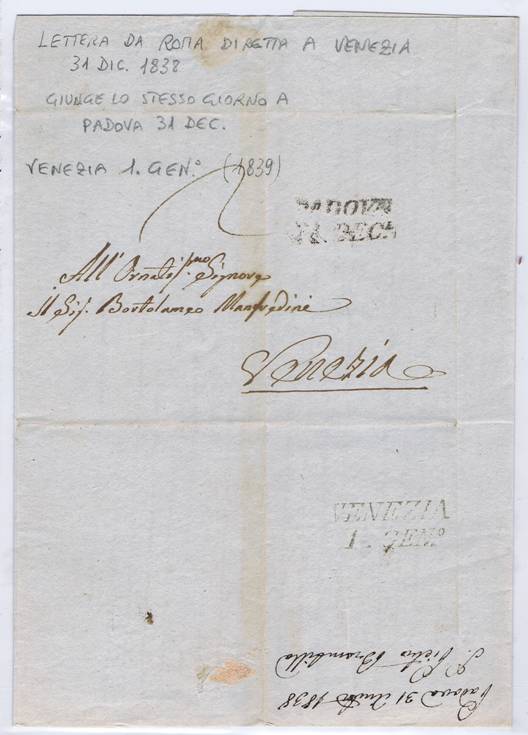 LETTERA DA ROMA DIRETTA A VENEZIA
31 DIC. 1838
GIUNGE LO STESSO GIORNO A
PADOVA 31 DEC.
VENEZIA 1. GEN.º (1839)
PADOVA
31. DEC.
All' Ornatis.mo Signore
Il Sig. Bortolameo Manfredini
Venezia
VENEZIA
1. GEN.º
Padova 31 1838
Pietro Brambilla